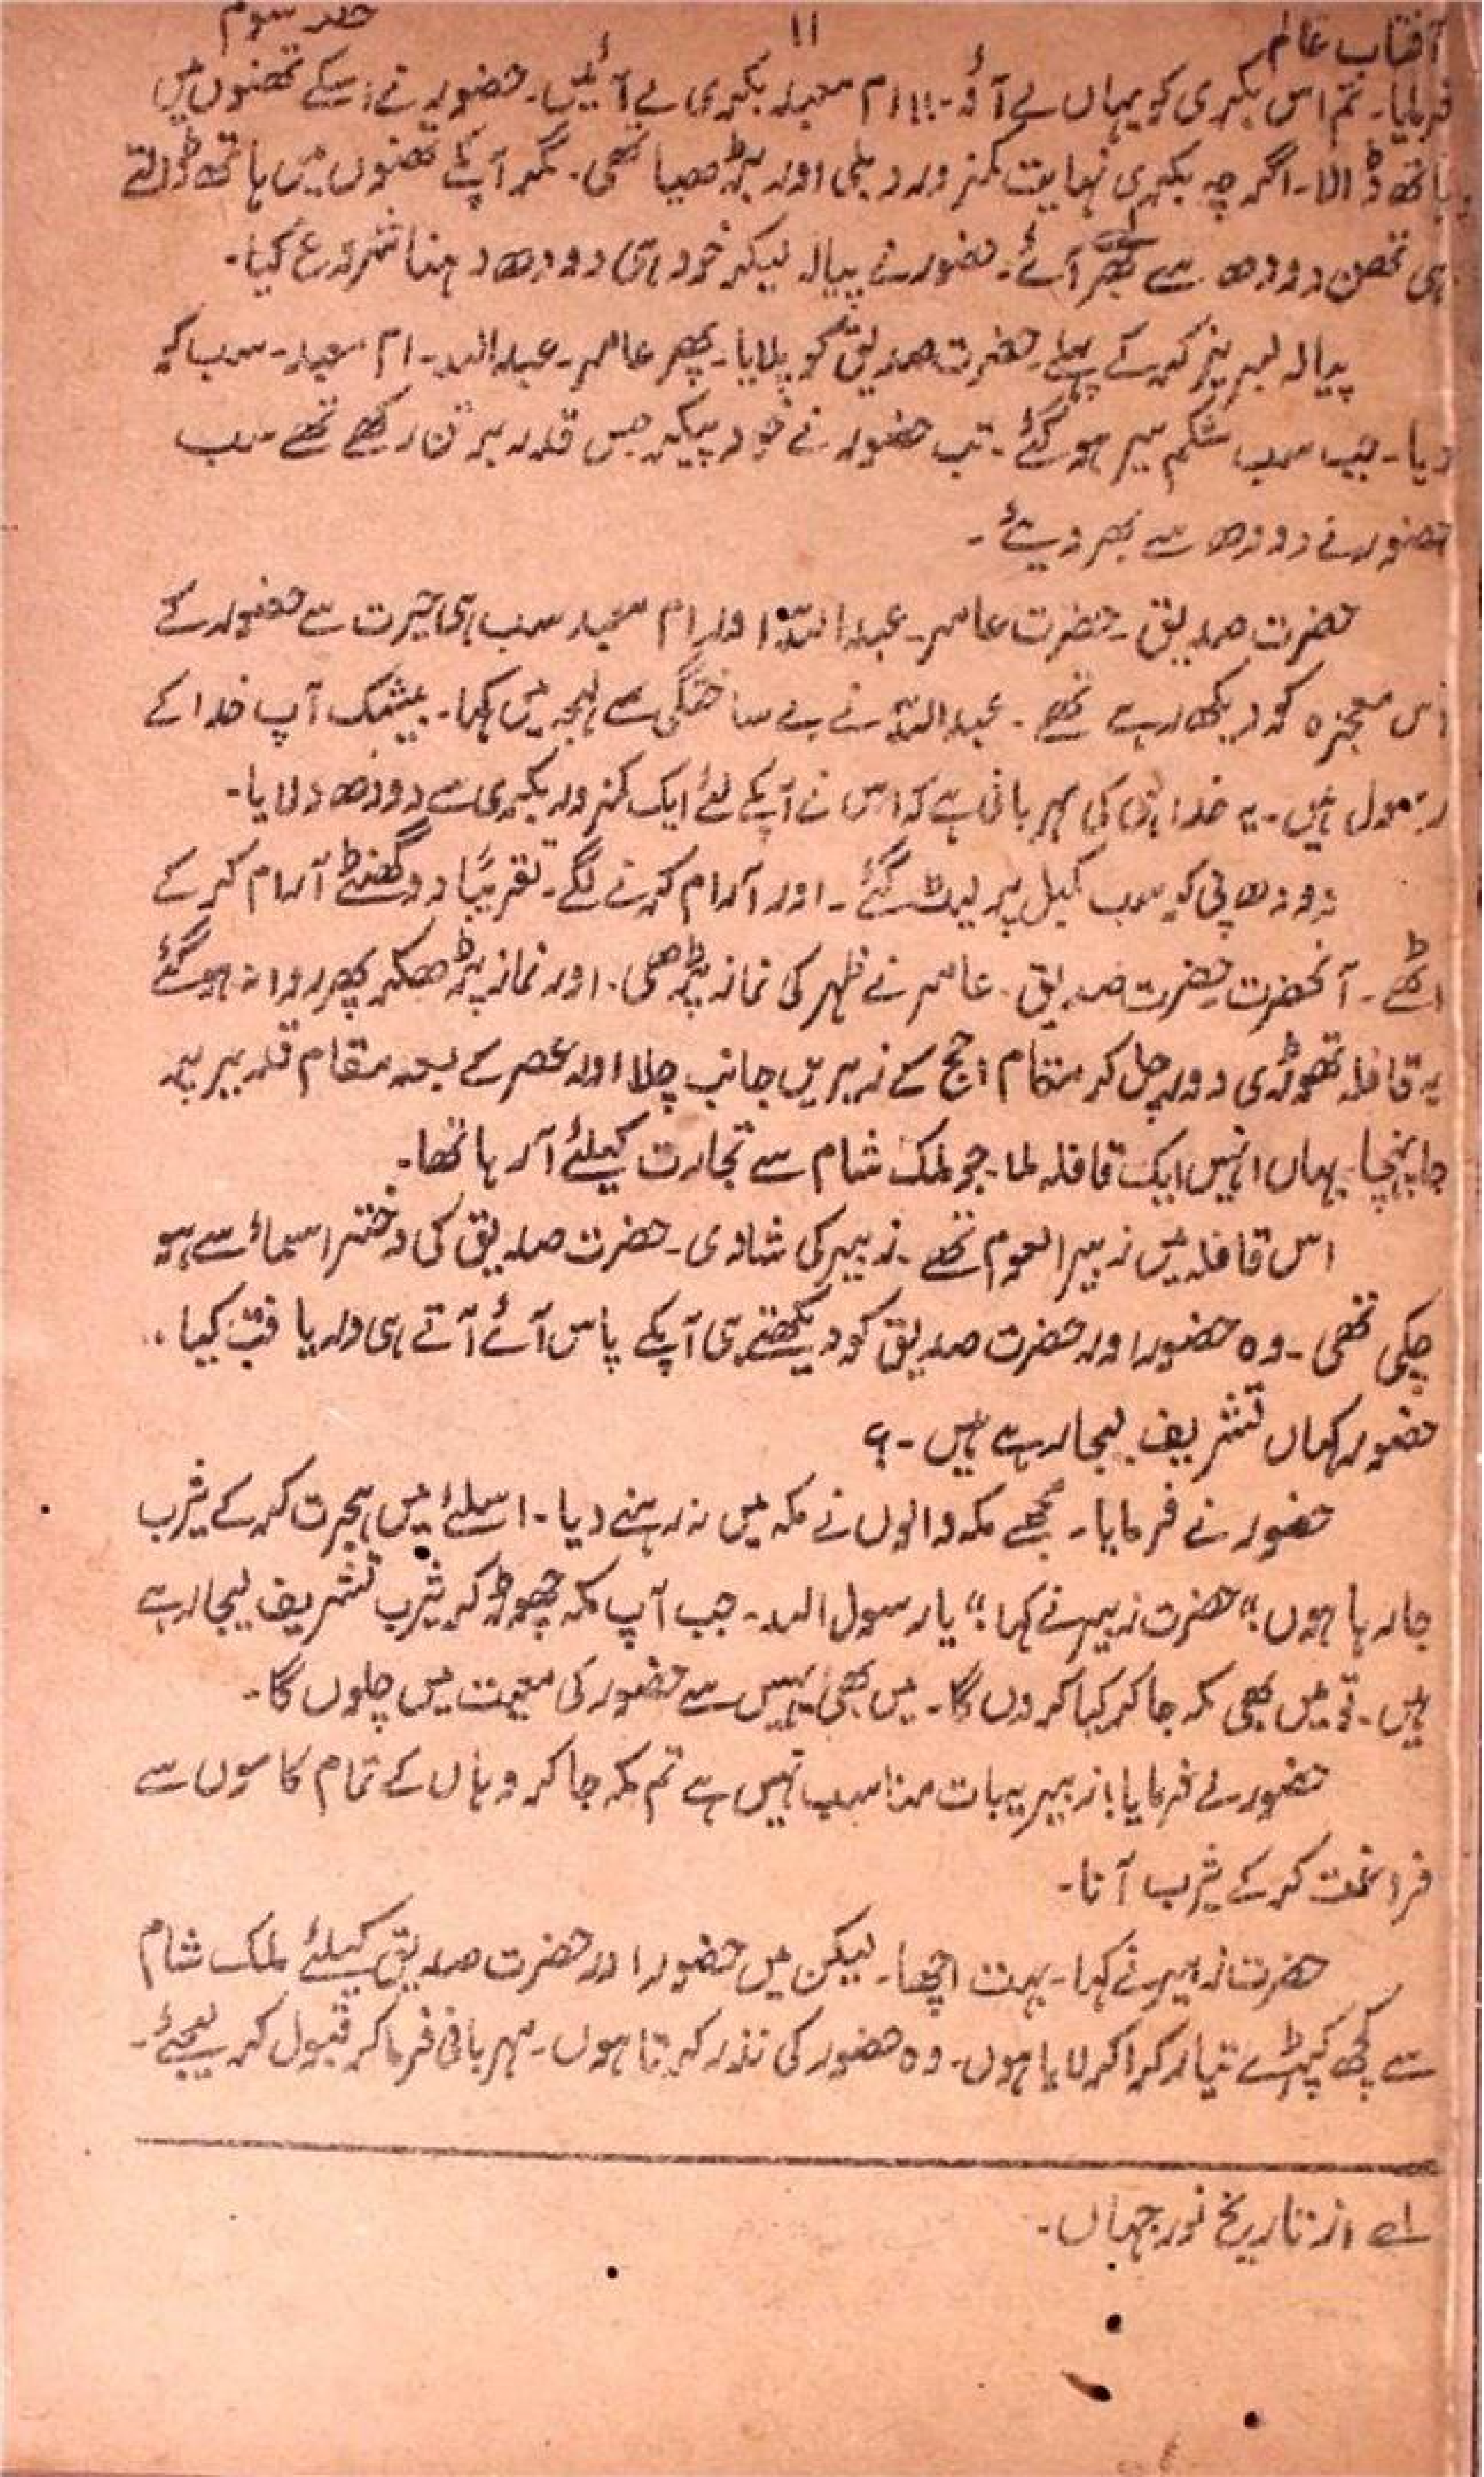 آفتاب عالم ۱۱ حصہ سوم
فرمایا۔ تم اس بکری کو یہاں لے آؤ۔!! ام معبد بکری لے آئیں۔ حضور نے اسکے تھنوں میں
ہاتھ ڈالا۔ اگرچہ بکری نہایت کمزور دبلی اور بڑھیا تھی۔ مگر آپکے تھنوں میں ہاتھ ڈالتے
ہی تھن دودھ سے بھر آئے۔ حضور نے پیالہ لیکر خود ہی دودھ دہنا شروع کیا۔
پیالہ لبریز کر کے پہلے حضرت صدیق کو پلایا۔ پھر عامر۔ عبداللہ۔ ام معبد۔ سب کو
دیا۔ جب سب شکم سیر ہو گئے۔ تب حضور نے خود پیکر جس قدر برتن رکھے تھے سب
حضور نے دودھ سے بھر دیئے۔
حضرت صدیق۔ حضرت عامر۔ عبداللہ اور ام معبد سب ہی حیرت سے حضور کے
اس معجزہ کو دیکھ رہے تھے۔ عبداللہ نے بے ساختگی کے لہجہ میں کہا۔ بیشک آپ خدا کے
رسول ہیں۔ یہ خدا ہی کی مہربانی ہے کہ اس نے آپکے لئے ایک کمزور بکری سے دودھ دلایا۔
دودھ پی کر سب کمبل پر لیٹ گئے۔ اور آرام کرنے لگے۔ تقریباً دو گھنٹے آرام کر کے
اٹھے۔ آنحضرت حضرت صدیق۔ عامر نے ظہر کی نماز پڑھی۔ اور نماز پڑھکر پھر روانہ ہو گئے
یہ قافلہ تھوڑی دور چل کر مقام امج کے زیریں جانب چلا اور عصر کے بعد مقام قدیر پر
جا پہنچا۔ یہاں انہیں ایک قافلہ ملا۔ جو ملک شام سے تجارت کیلئے آ رہا تھا۔
اس قافلہ میں زبیر العوم تھے۔ زبیر کی شادی۔ حضرت صدیق کی دختر اسماء سے ہو
چکی تھی۔ وہ حضور اور حضرت صدیق کو دیکھتے ہی آپکے پاس آئے آتے ہی دریافت کیا۔
حضور کہاں تشریف لیجا رہے ہیں۔؟
حضور نے فرمایا۔ مجھے مکہ والوں نے مکہ میں نہ رہنے دیا۔ اسلئے میں ہجرت کر کے یثرب
جا رہا ہوں!“ حضرت زبیر نے کہا!“ یا رسول اللہ۔ جب آپ مکہ چھوڑ کر یثرب تشریف لیجا رہے
ہیں۔ تو میں بھی مکہ جا کر کیا کروں گا۔ میں بھی یہیں سے حضور کی معیت میں چلوں گا۔
حضور نے فرمایا! زبیر یہ بات مناسب نہیں ہے تم مکہ جا کر وہاں کے تمام کاموں سے
فراغت کر کے یثرب آنا۔
حضرت زبیر نے کہا۔ بہت اچھا۔ لیکن میں حضور اور حضرت صدیق کیلئے ملک شام
سے کچھ کپڑے تیار کرا کر لایا ہوں۔ وہ حضور کی نذر کرتا ہوں۔ مہربانی فرما کر قبول کر لیجئے۔
لہ از تاریخ نور جہاں۔